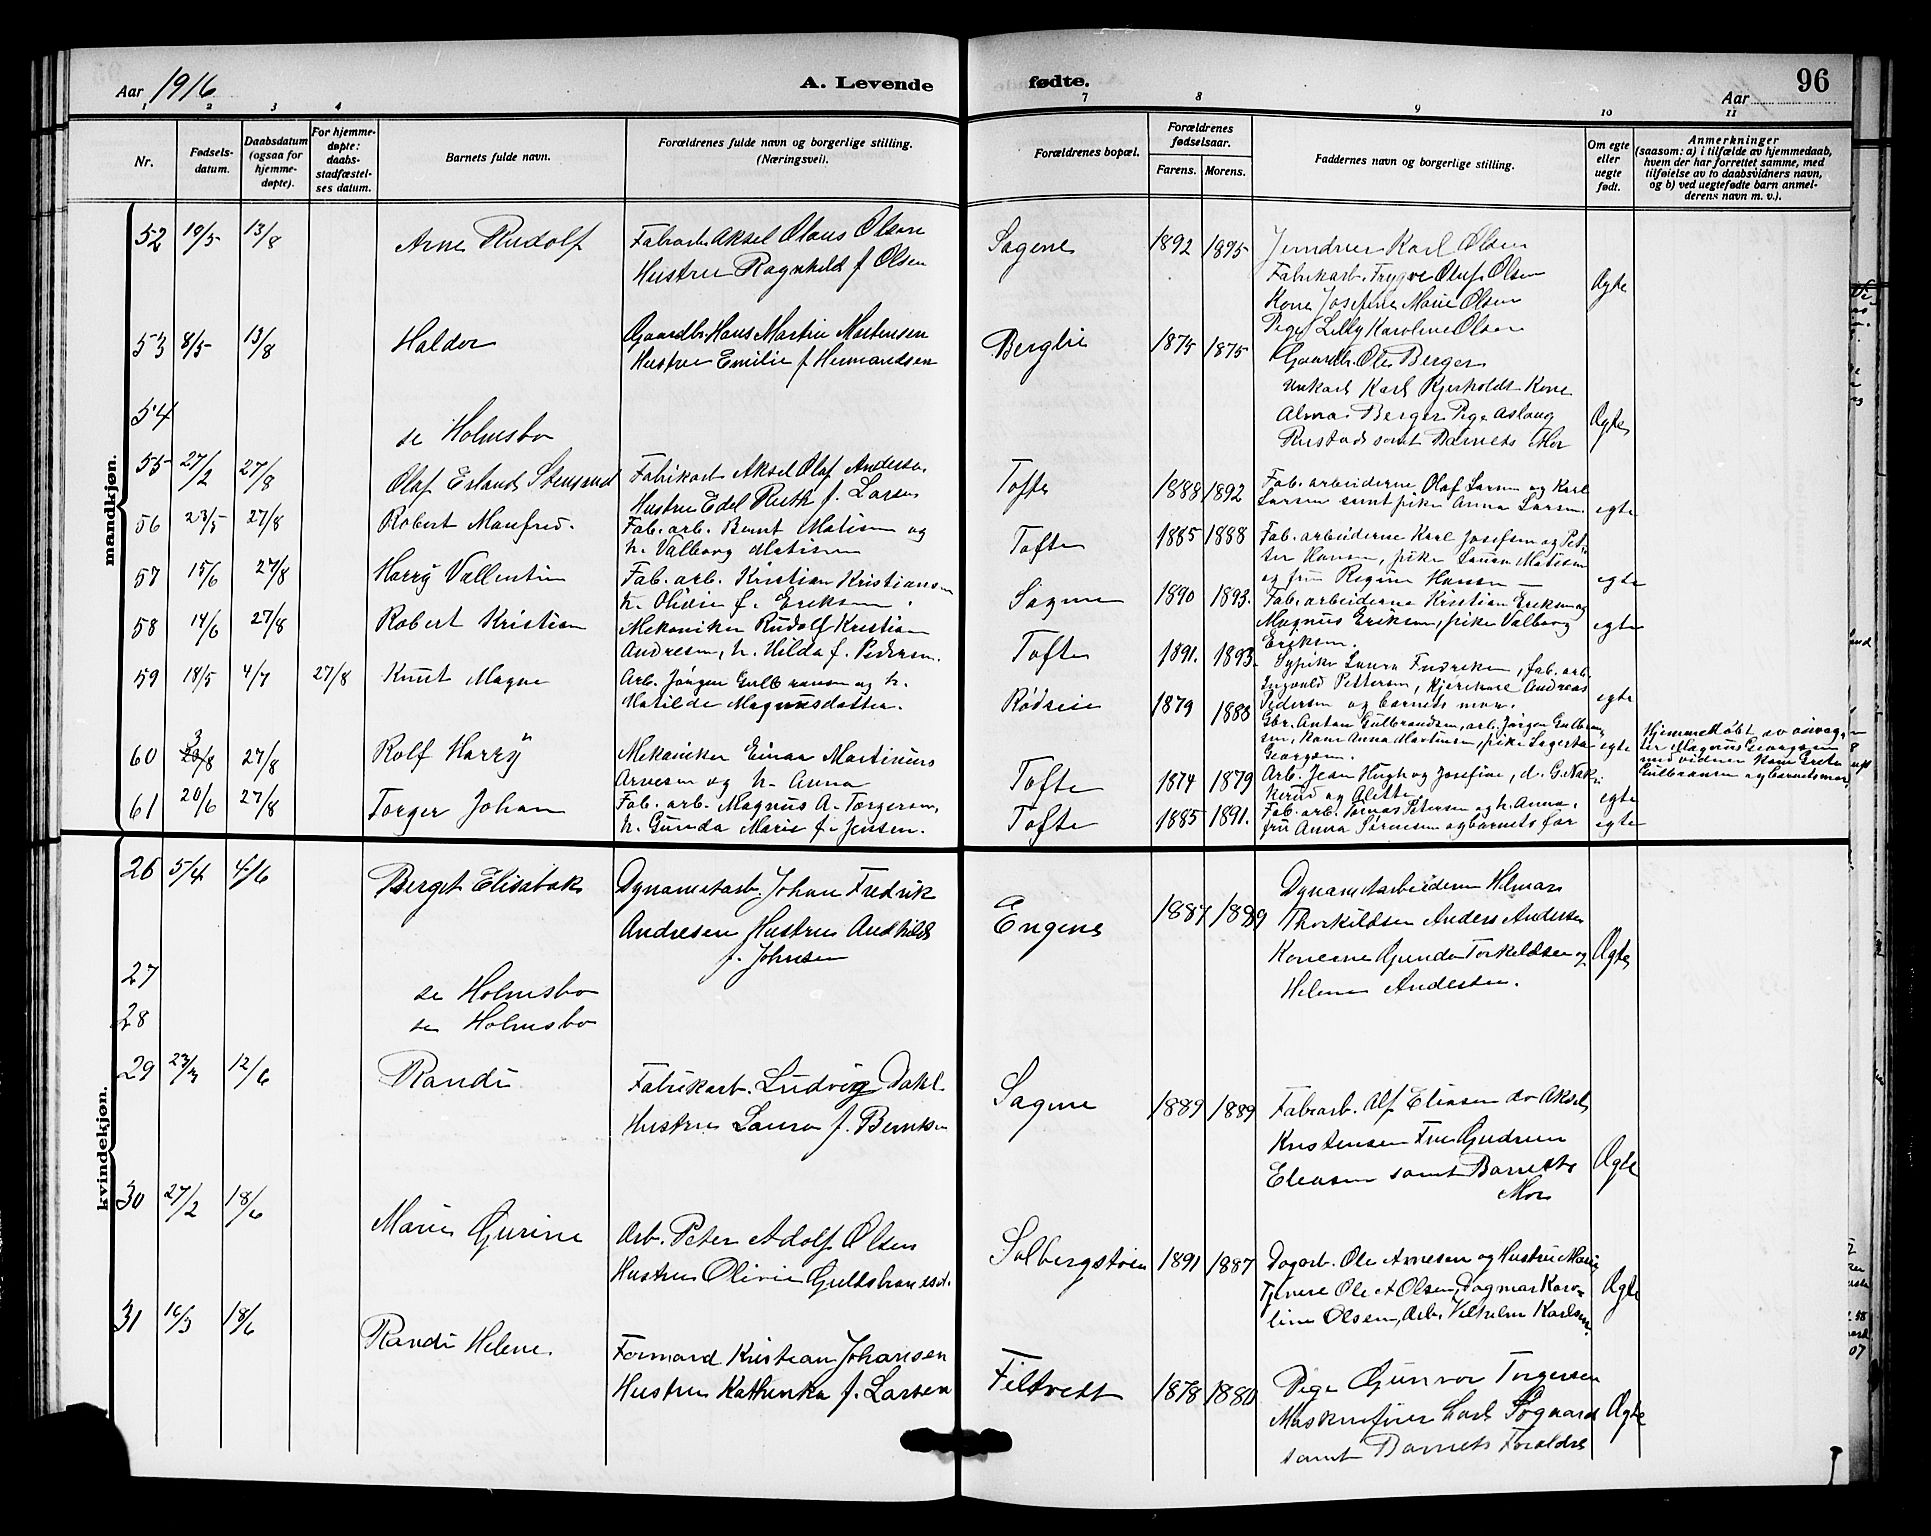 Aar 1916
A. Levende
fødte.
96
Aar
1 2 3 4
7 8 9 10 11
Nr.
Fødsels-
datum.
Daabsdatum
(ogsaa for
hjemme-
døpte).
For hjemme-
døpte:
daabs-
stadfæstel-
ses datum.
Barnets fulde navn.
Forældrenes fulde navn og borgerlige stilling.
(Næringsvei).
Forældrenes bopæl.
Forældrenes
fødselsaar.
Farens. Morens.
Faddernes navn og borgerlige stilling.
Om egte
eller
uegte
født.
Anmerkninger
(saasom: a) i tilfælde av hjemmedaab,
hvem der har forrettet samme, med
tilføielse av to daabsvidners navn,
og b) ved uegtefødte barn anmel-
derens navn m. v.).
mandkjøn.
52 19/5 13/8 Arne Rudolf
Fabrarb. Aksel Olaus Olsen
Hustru Ragnhild f Olsen
Sagene 1892 1895
Karl Olsen
Fabrikarb. Trygve Oluf Olsen
Kone Josefine Marie Olsen
Pige Lilly Karoline Olsen
Ægte
53 8/5 13/8 Haldor
Gaardbr. Hans Martin Mortensen
Hustru Emilie f Hermandsen
Berglie 1875 1875
Gaardbr. Ole Berger
Unkarl Karl Kjerholdt Kone
Alma Berger Pige Aslaug
Rustad samt Barnets Mor
Ægte
54 se Holmsbo
55 27/2 27/8 Olaf Erland Stensrud
Fabrikarb Aksel Olaf Anderse.
Hustru Edel Ruth f. Larsen
Tofte 1888 1892
Fab. arbeiderne Olaf Larsen og Karl
Larsen samt pike Anna Larsen.
egte
56 23/5 27/8 Robert Manfred.
Fab. arb. Bernt Matisen og
h. Valborg Matisen
Tofte 1885 1888
Fab. arbeiderne Karl Josefsen og Pet-
ter Hansen, pike Laura Matisen
og fru Regine Hansen
egte
57 15/6 27/8 Harry Vallentin
Fab. arb. Kristian Kristiansen
h. Olivie f. Eriksen.
Sagene 1890 1893.
Fab. arbeiderne Kristian Eriksen og
Magnus Eriksen, pike Valborg
Eriksen.
egte
58 14/6 27/8 Robert Kristian
Mekaniker Rudolf Kristian
Andresen, h. Hilda f. Pedersen.
Tofte 1891. 1893.
Sypike Laura Fredriksen, fab. arb.
Ingvald Pettersen, kjørekarl Andreas
Pedersen og barnets mor.
egte
59 18/5 4/7 27/8 Knut Magne
Arb. Jørgen Gulbransen og h.
Matilde Magnusdatter.
Rødseie 1879 1888
Gbr. Anton Gulbrandsen, arb. Jørgen Gulbran-
sen, kone Anna Martinsen, pike
Georgsen.
egte
Hjemmedøbt av
Magnus Georgsen
med vidner Kone Grete
Gulbransen og barnets mor.
60 3/8 27/8 Rolf Harry
Mekaniker Einar Martinius
Arnesen og h. Anna
Tofte 1874 1879
Arb. Jean Hugh og Josefine, d. G.
og Alette
egte
61 20/6 27/8 Torger Johan
Fab. arb. Magnus A. Torgersen,
h. Gunda Marie f. Jensen.
Tofte 1885 1891.
Fab. arb. Tomas Petersen og h. Anna,
fru Anna Sørensen og barnets far
egte
kvindekjøn.
26 5/4 4/6 Berget Elisabak
Dynamitarb. Johan Fredrik
Andresen Hustru Audhild
f. Johnsen
Engene 1887 1889
Dynamitarbeiderne Helmar
Thorkildsen Anders Andersen
Konerne Gunda Torkeldsen og
Helene Andersen.
Ægte
27 se Holmsbo
28 se Holmsbo
29 23/3 12/6 Randi
Fabrikarb. Ludvig Dahl
Hustru Laura f. Berntsen
Sagene 1889 1889
Fabrarb. Alf Eliasen do Aksel
Kristensen Fru Gudrun
Eleasen samt Barnets
Mor
Ægte
30 27/2 18/6 Marie Gurine
Arb. Peter Adolf Olsen
Hustru Olivie Gulbbransd.
Solbergstrøm 1891 1887
Dagarb. Ole Arnesen og Hustru Marie
Tjenere Ole A Olsen, Dagmar Karo-
line Olsen, Arb. Vilhelm Karlsen.
Ægte
31 16/3 18/6 Randi Helene
Formand Kristian Johansen
Hustru Kathinka f. Larsen
Filtvedt 1878 1880
Pige Gunvor Torgersen
Maskinfører Carl Søgaard
samt Barnets Foreldre
Ægte